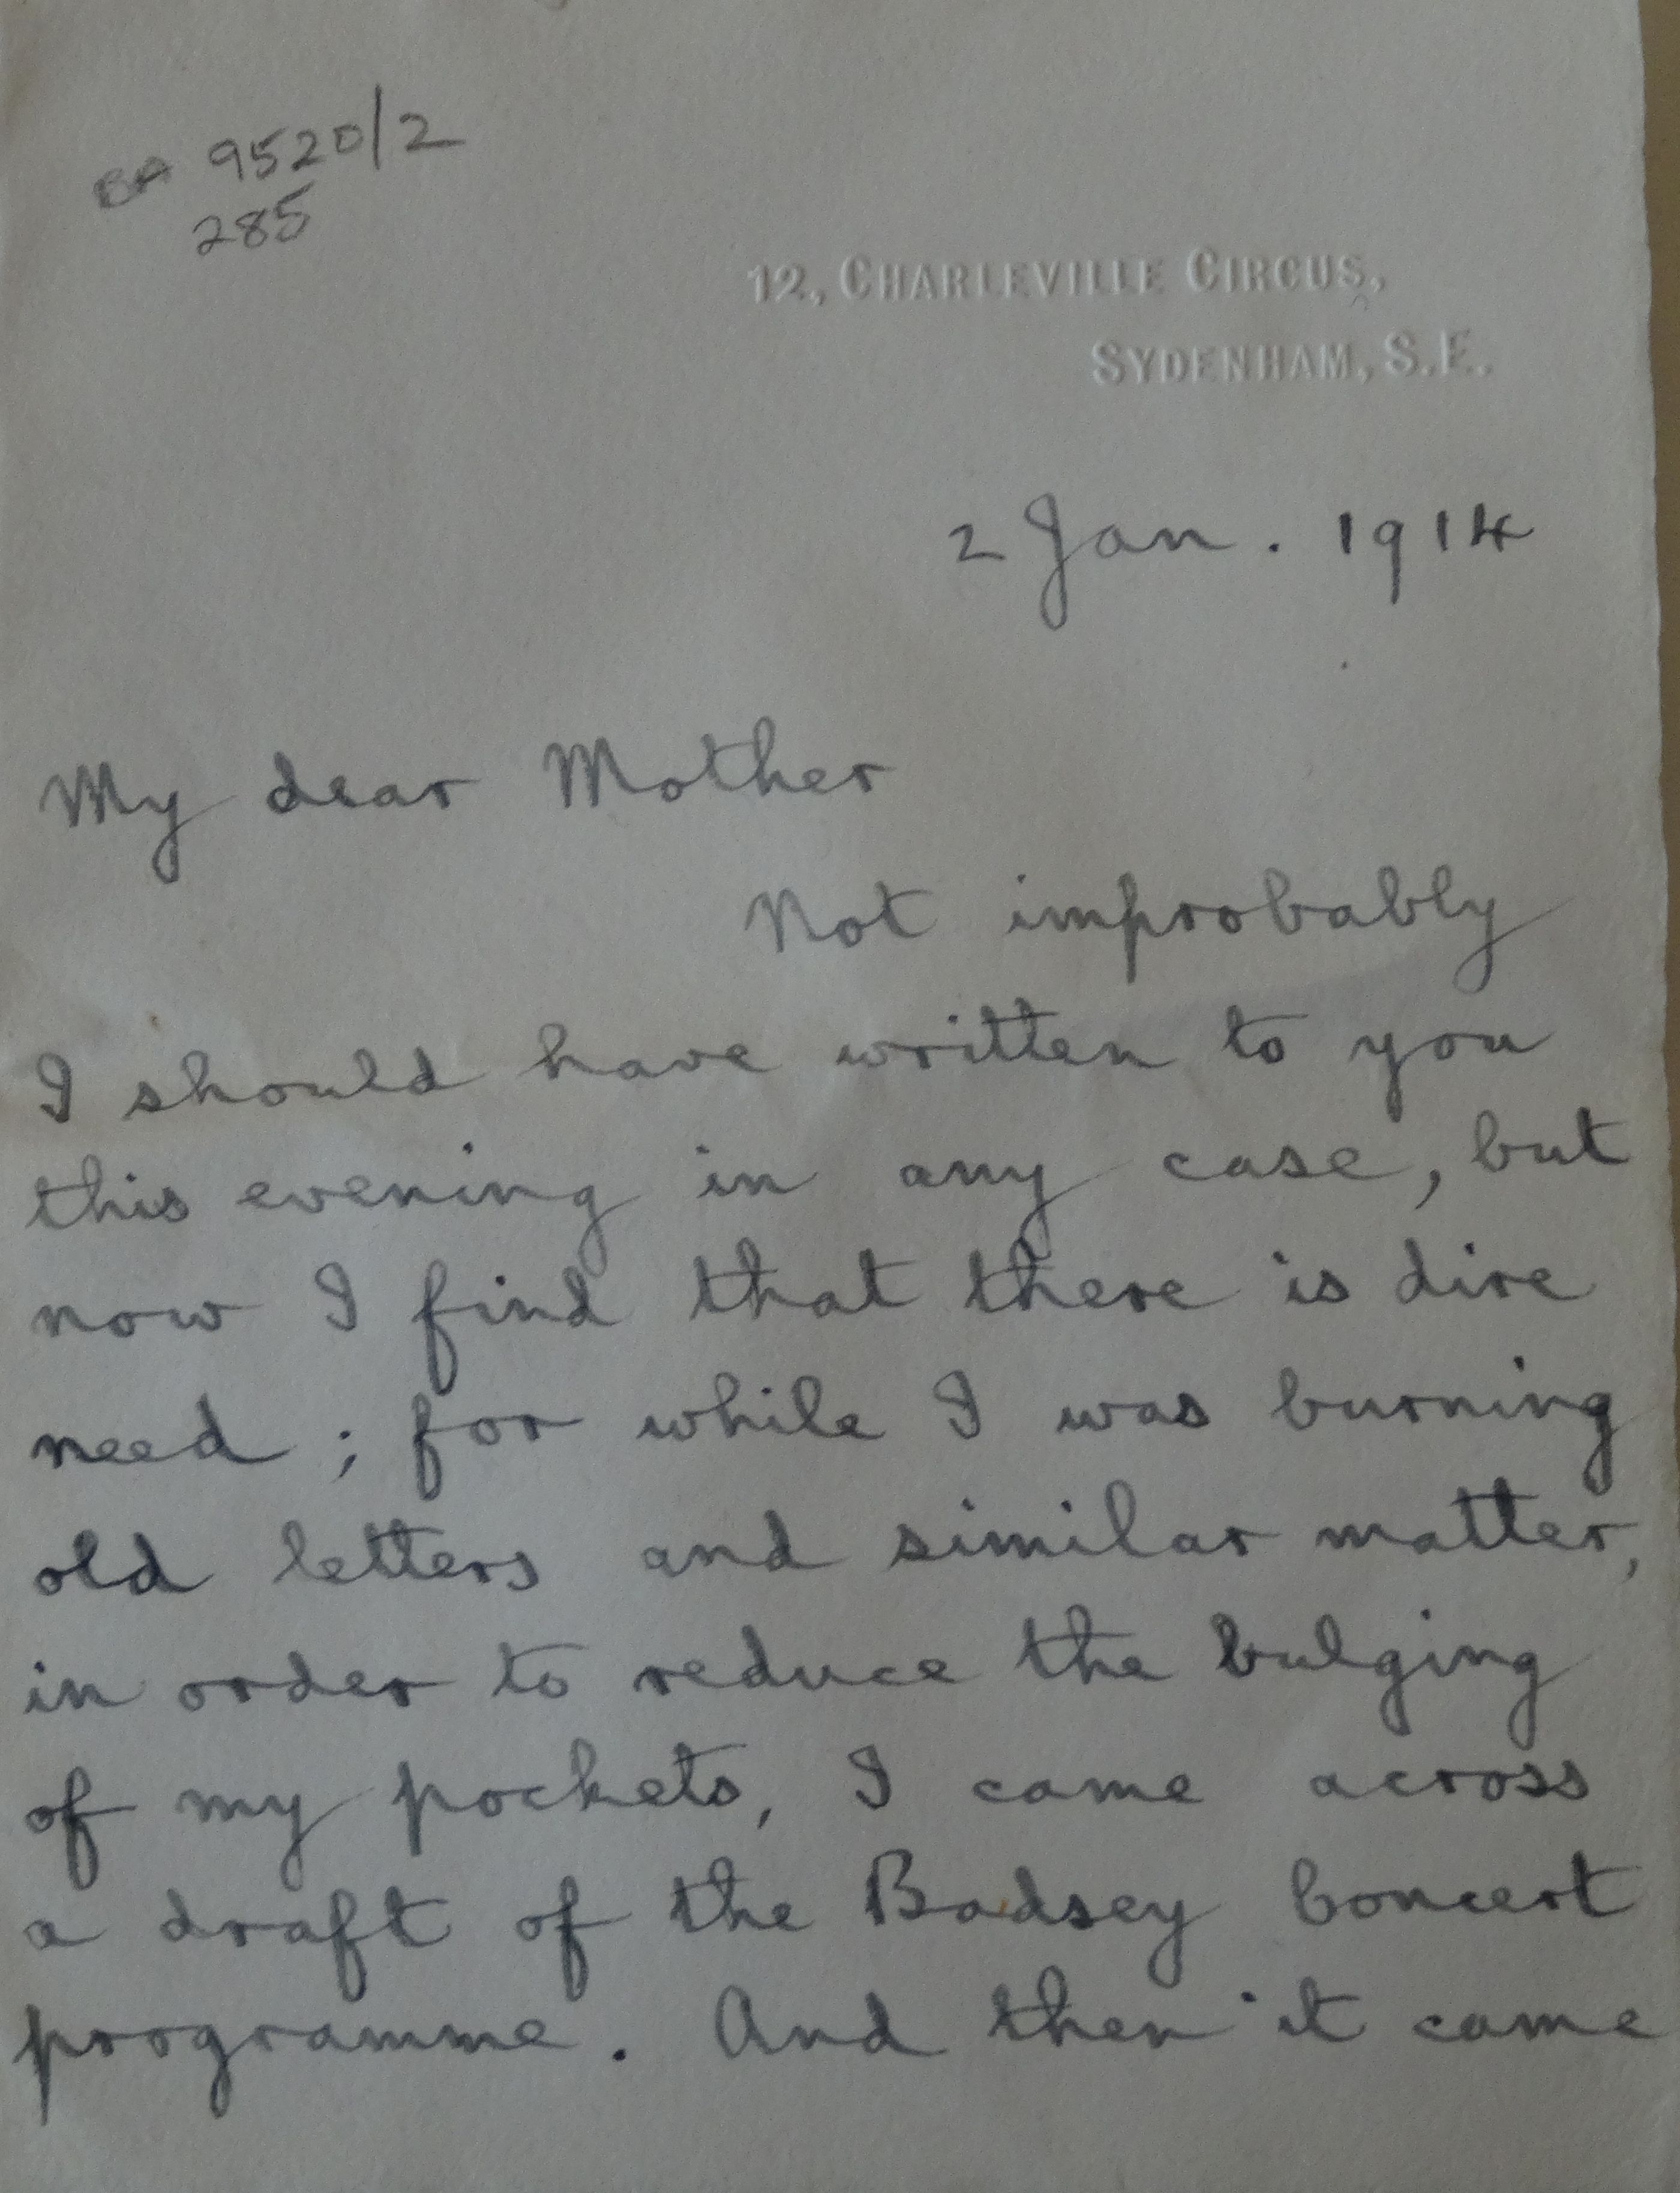 BA 9520/2
285
12, CHARLEVILLE CIRCUS,
SYDENHAM, S.E.
2 Jan. 1914
My dear Mother
Not improbably
I should have written to you
this evening in any case, but
now I find that there is dire
need; for while I was burning
old letters and similar matter,
in order to reduce the bulging
of my pockets, I came across
a draft of the Badsey Concert
programme. And then it came